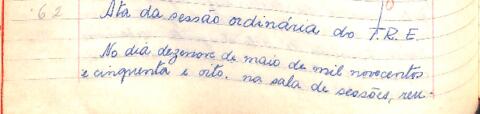 62
Ata da sessão ordinária do T.R.E.
No dia dezenove de maio de mil novecentos
e cinquenta e oito, na sala de sessões, reu-